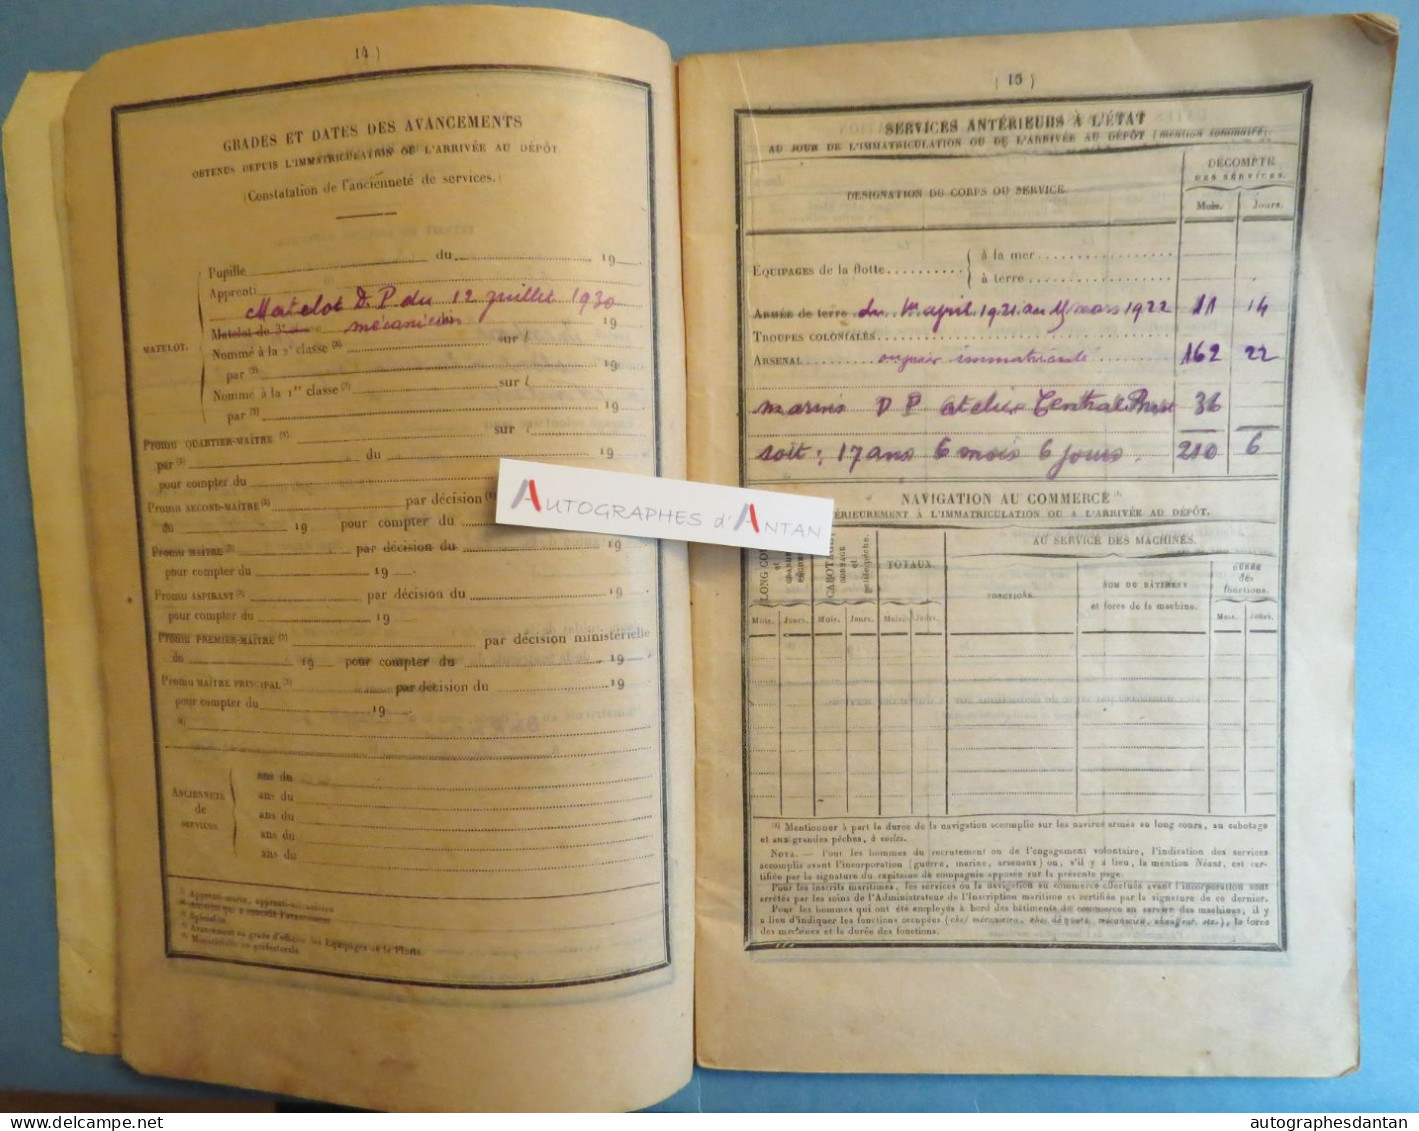 14 )
GRADES ET DATES DES AVANCEMENTS
OBTENUS DEPUIS L'IMMATRICULATION OU L'ARRIVÉE AU DÉPÔT.
(Constatation de l'ancienneté de services.)
Pupille du 19
Apprenti
Matelot D.P. du 12 juillet 1930
Matelot de 3e mécanicien 19
MATELOT.
Nommé à la 2e classe (2) sur l
par (2) 19
Nommé à la 1re classe (2) sur l
par (3) 19
Promu QUARTIER-MAÎTRE (3) sur l
par (2) du 19
pour compter du
Promu SECOND-MAÎTRE (3) par décision
du 19 pour compter du
Promu MAÎTRE (3) par décision du 19
pour compter du 19
Promu ASPIRANT (3) par décision du 19
pour compter du 19
Promu PREMIER-MAÎTRE (3) par décision ministérielle
du 19 pour compter du 19
Promu MAÎTRE PRINCIPAL (3) par décision du 19
pour compter du 19
ANCIENNETÉ de SERVICES.
ans du
ans du
ans du
ans du
ans du
AUTOGRAPHES d'ANTAN
( 15 )
SERVICES ANTÉRIEURS À L'ÉTAT
AU JOUR DE L'IMMATRICULATION OU DE L'ARRIVÉE AU DÉPÔT (mention sommaire).
DÉSIGNATION DU CORPS OU SERVICE.
DÉCOMPTE
DES SERVICES.
Mois. Jours.
ÉQUIPAGES de la flotte
à la mer
à terre
ARMÉE de terre du 1er april 1921 au 15 mars 1922 11 14
TROUPES COLONIALES
ARSENAL ouvrier immatriculé 162 22
marins D P atelier Central 36
soit : 17 ans 6 mois 6 jours. 210 6
NAVIGATION AU COMMERCE (1)
ÉRIEUREMENT À L'IMMATRICULATION OU À L'ARRIVÉE AU DÉPÔT.
LONG CO
et
CABOTAGE,
BORNAGE
et
petite pêche.
TOTAUX.
AU SERVICE DES MACHINES.
FONCTIONS.
NOM DU BÂTIMENT
et force de la machine.
DURÉE
des
fonctions.
Mois. Jours. Mois. Jours. Mois. Jours. Mois. Jours.
(1) Mentionner à part la durée de la navigation accomplie sur les navires armés au long cours, au cabotage
et aux grandes pêches, à voiles.
NOTA. — Pour les hommes du recrutement ou de l'engagement volontaire, l'indication des services
accomplis avant l'incorporation (guerre, marine, arsenaux) ou, s'il y a lieu, la mention Néant, est cer-
tifiée par la signature du capitaine de compagnie apposée sur la présente page.
Pour les inscrits maritimes, les services ou la navigation au commerce effectués avant l'incorporation sont
arrêtés par les soins de l'Administrateur de l'Inscription maritime et certifiés par la signature de ce dernier.
Pour les hommes qui ont été employés à bord des bâtiments de commerce au service des machines, il y
a lieu d'indiquer les fonctions occupées (chef mécanicien, chef de quart, mécanicien, chauffeur, etc.), la force
des machines et la durée des fonctions.
delcampe.net
autographesdantan